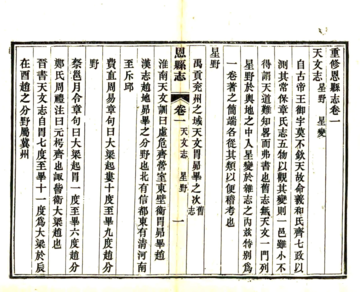 重修恩縣志卷一
天文志 星野 星變
自古帝王御宇莫不欽天故命羲和氏齊七政以
測其常保章氏志五物以觀其變則一邑雖小不
得謂天道難知畧而弗書也舊志無天文一門列
星野於輿地之中入星變於雜志之內茲特別為
一卷著之簡端各從其類以便稽考也
星野
禹貢兗州之域天文胃昴畢之次舊志
恩縣志 卷一 天文志 星野 一
淮南天文訓曰虛危齊營室東壁衛胃昴畢趙
漢志趙地昴畢之分野也北有信都東有清河南
至斥邱
費直周易章句曰大梁起婁十度至畢九度趙分
野
蔡邕月令章句曰大梁起胃一度至畢六度趙分
鄭氏周禮注曰元枵齊也諏訾衛大梁趙也
晉書天文志自胃七度至畢十一度為大梁於辰
在酉趙之分野屬冀州